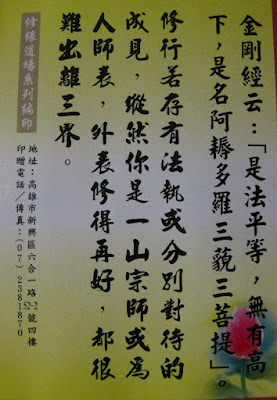 金剛經云：「是法平等，無有高
下，是名阿耨多羅三藐三菩提」。
修行若存有法執或分別對待的
成見，縱然你是一山宗師或為
人師表，外表修得再好，都很
難出離三界。
修緣道場系列編印
地址：高雄市新興區六合一路52-2號四樓
印贈電話／傳真：(07)2381870